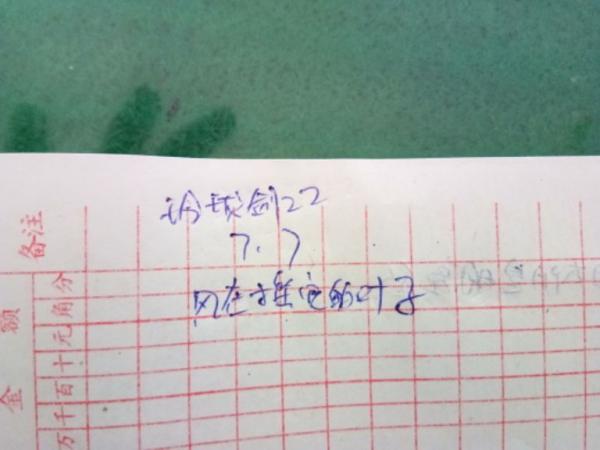 玲珑剑22
7.7
风在推它的叶子
备注
金额
万千百十元角分